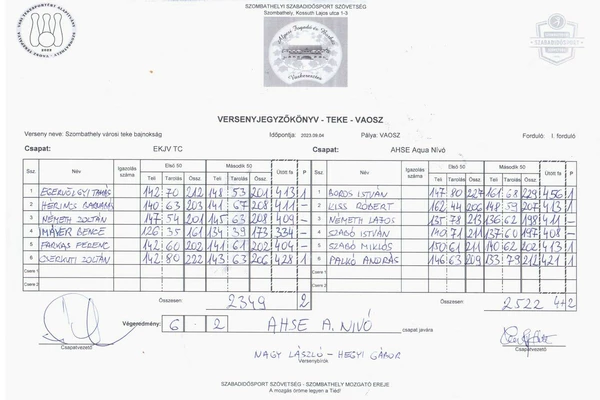 SZOMBATHELYI SZABADIDŐSPORT SZÖVETSÉG
Szombathely, Kossuth Lajos utca 1-3
VERSENYJEGYZŐKÖNYV - TEKE - VAOSZ
Verseny neve: Szombathely városi teke bajnokság Időpontja: 2023.09.04 Pálya: VAOSZ Forduló: I. forduló
Csapat: EKJV TC Csapat: AHSE Aqua Nívó
Ssz. Név Igazolás száma Első 50 Második 50 Ütött fa P Ssz. Név Igazolás száma Első 50 Második 50 Ütött fa P
Teli Tarolás Össz. Teli Tarolás Össz. Teli Tarolás Össz. Teli Tarolás Össz.
1 EGERVÖLGYI TAMÁS 142 70 212 148 53 201 413 1 1 BOROS ISTVÁN 147 80 227 161 68 229 456 1
2 HERLICS BARNABÁS 140 63 203 141 67 208 411 - 2 KISS RÓBERT 162 44 206 148 59 207 413 1
3 NÉMETH ZOLTÁN 147 54 201 145 63 208 409 - 3 NÉMETH LAJOS 135 78 213 136 62 198 411 -
4 MÁYER BENCE 126 35 161 134 39 173 334 - 4 SZABÓ ISTVÁN 140 71 211 137 60 197 408 -
5 FARKAS FERENC 142 60 202 141 61 202 404 - 5 SZABÓ MIKLÓS 150 61 211 140 62 202 413 1
6 CSERKUTI ZOLTÁN 142 80 222 143 63 206 428 1 6 PALKÓ ANDRÁS 146 63 209 133 79 212 421 1
Csere 1 Csere 1
Csere 2 Csere 2
Összesen: 2349 2 Összesen: 2522 4+2
Végeredmény: 6 - 2 AHSE A. NIVÓ csapat javára
Csapatvezető Csapatvezető
NAGY LÁSZLÓ - HEGYI GÁBOR
Versenybírók
SZABADIDŐSPORT SZÖVETSÉG - SZOMBATHELY MOZGATÓ EREJE
A mozgás öröme legyen a Tiéd!